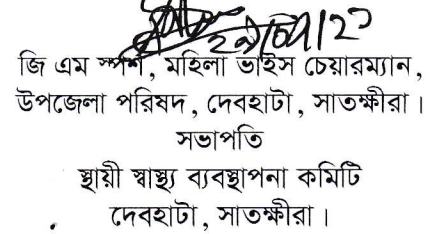 জি এম স্পর্শ, মহিলা ভাইস চেয়ারম্যান,
উপজেলা পরিষদ, দেবহাটা, সাতক্ষীরা।
সভাপতি
স্থায়ী স্বাস্থ্য ব্যবস্থাপনা কমিটি
দেবহাটা, সাতক্ষীরা।